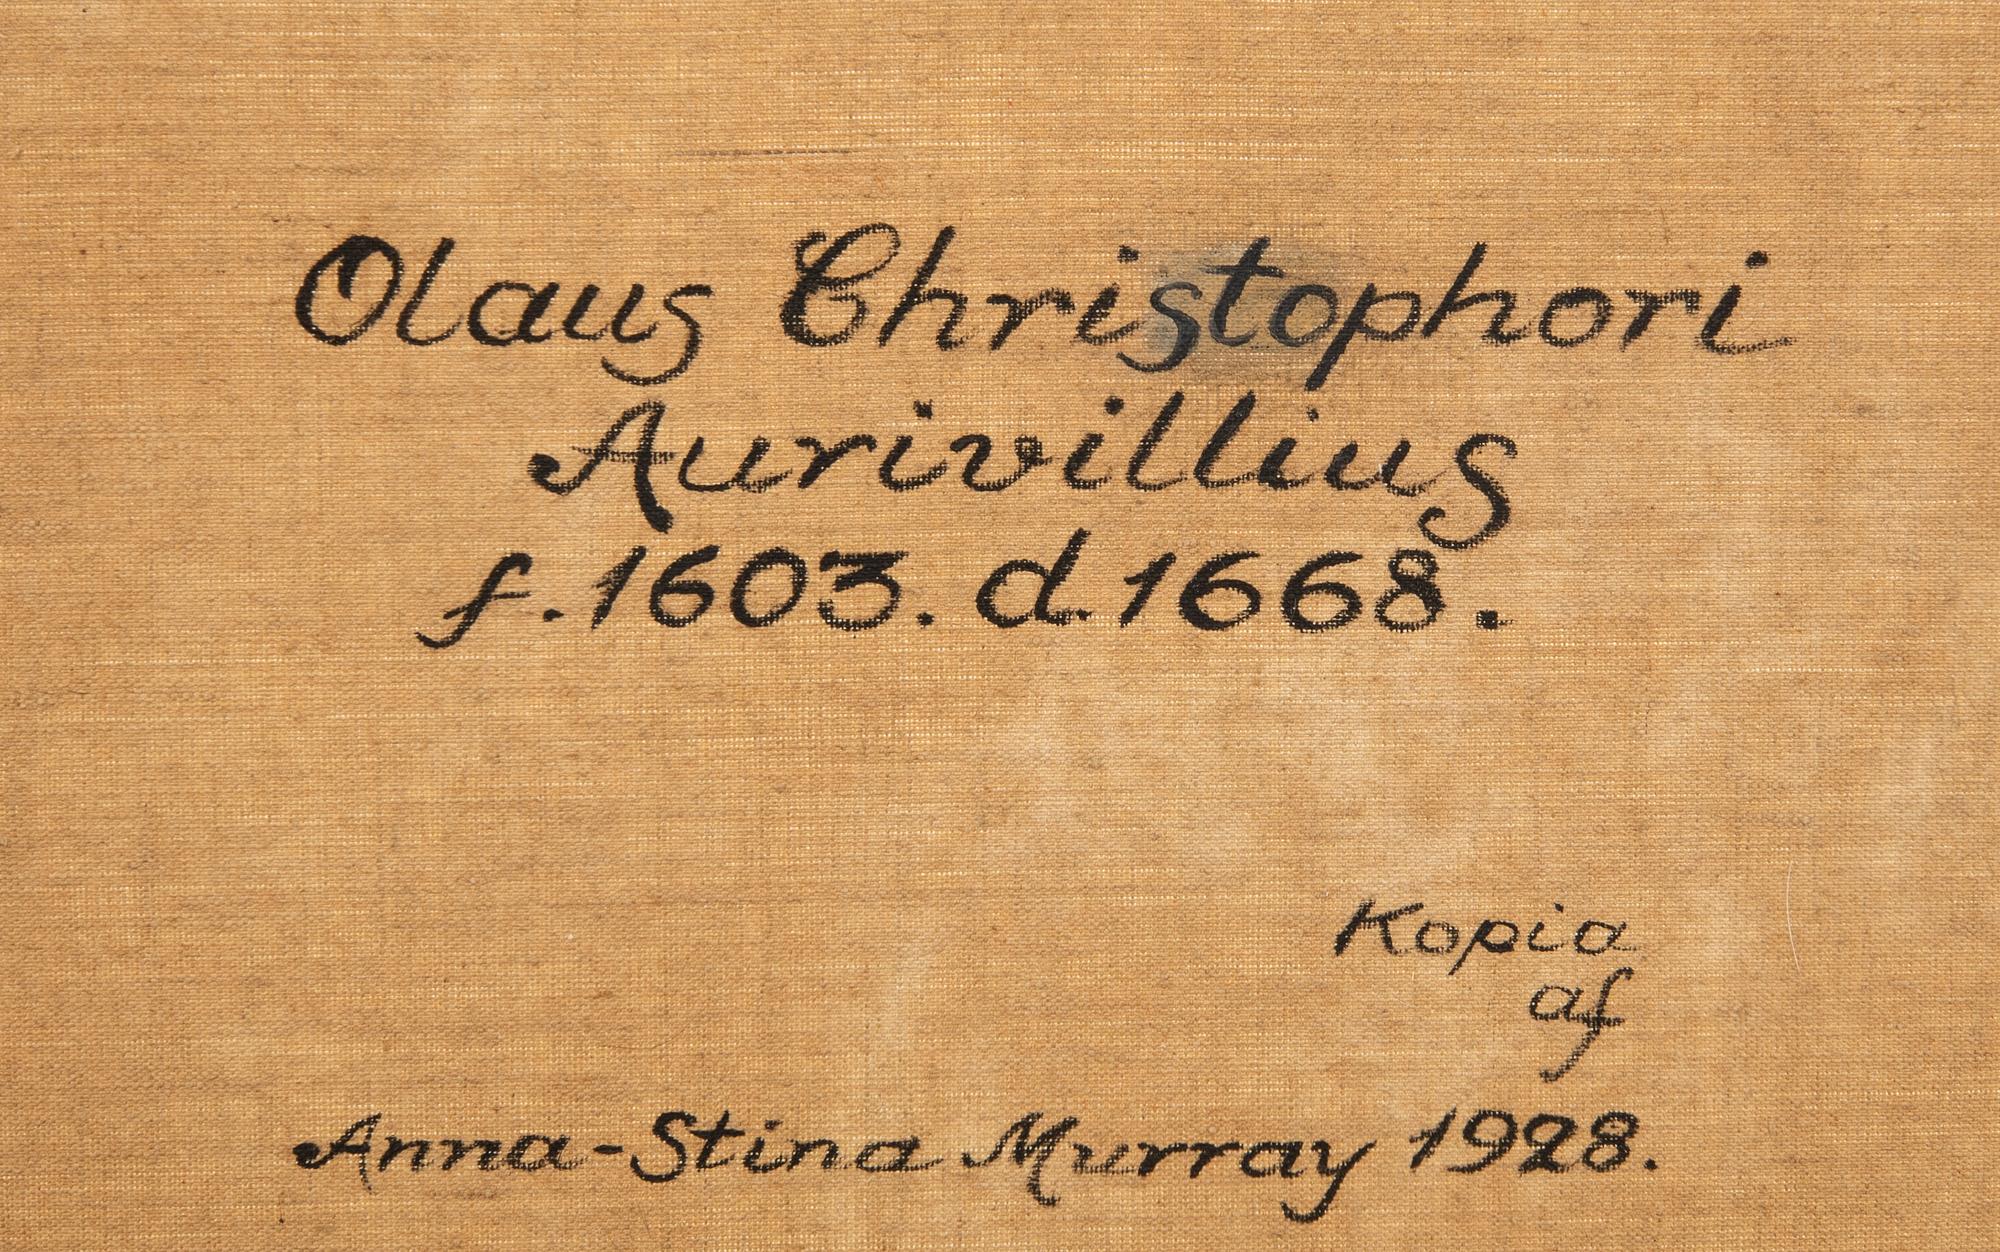 Olaus Christophori
Aurivillius
f. 1603. d. 1668.
Kopia
af
Anna-Stina Murray 1928.